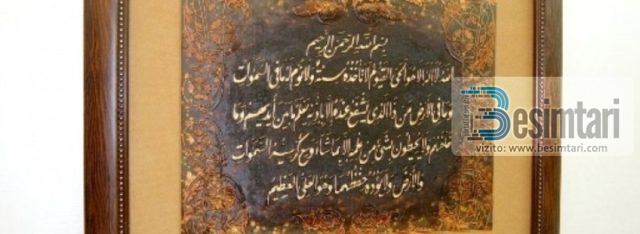 بسم الله الرحمن الرحيم
الله لا اله الا هو الحي القيوم لا تأخذه سنة ولا نوم له ما في السموات
وما في الارض من ذا الذي يشفع عنده الا باذنه يعلم ما بين أيديهم وما
خلفهم ولا يحيطون بشئ من علمه الا بما شاء وسع كرسيه السموات
والارض ولا يؤده حفظهما وهو العلي العظيم
Besimtari
vizito: www.besimtari.com